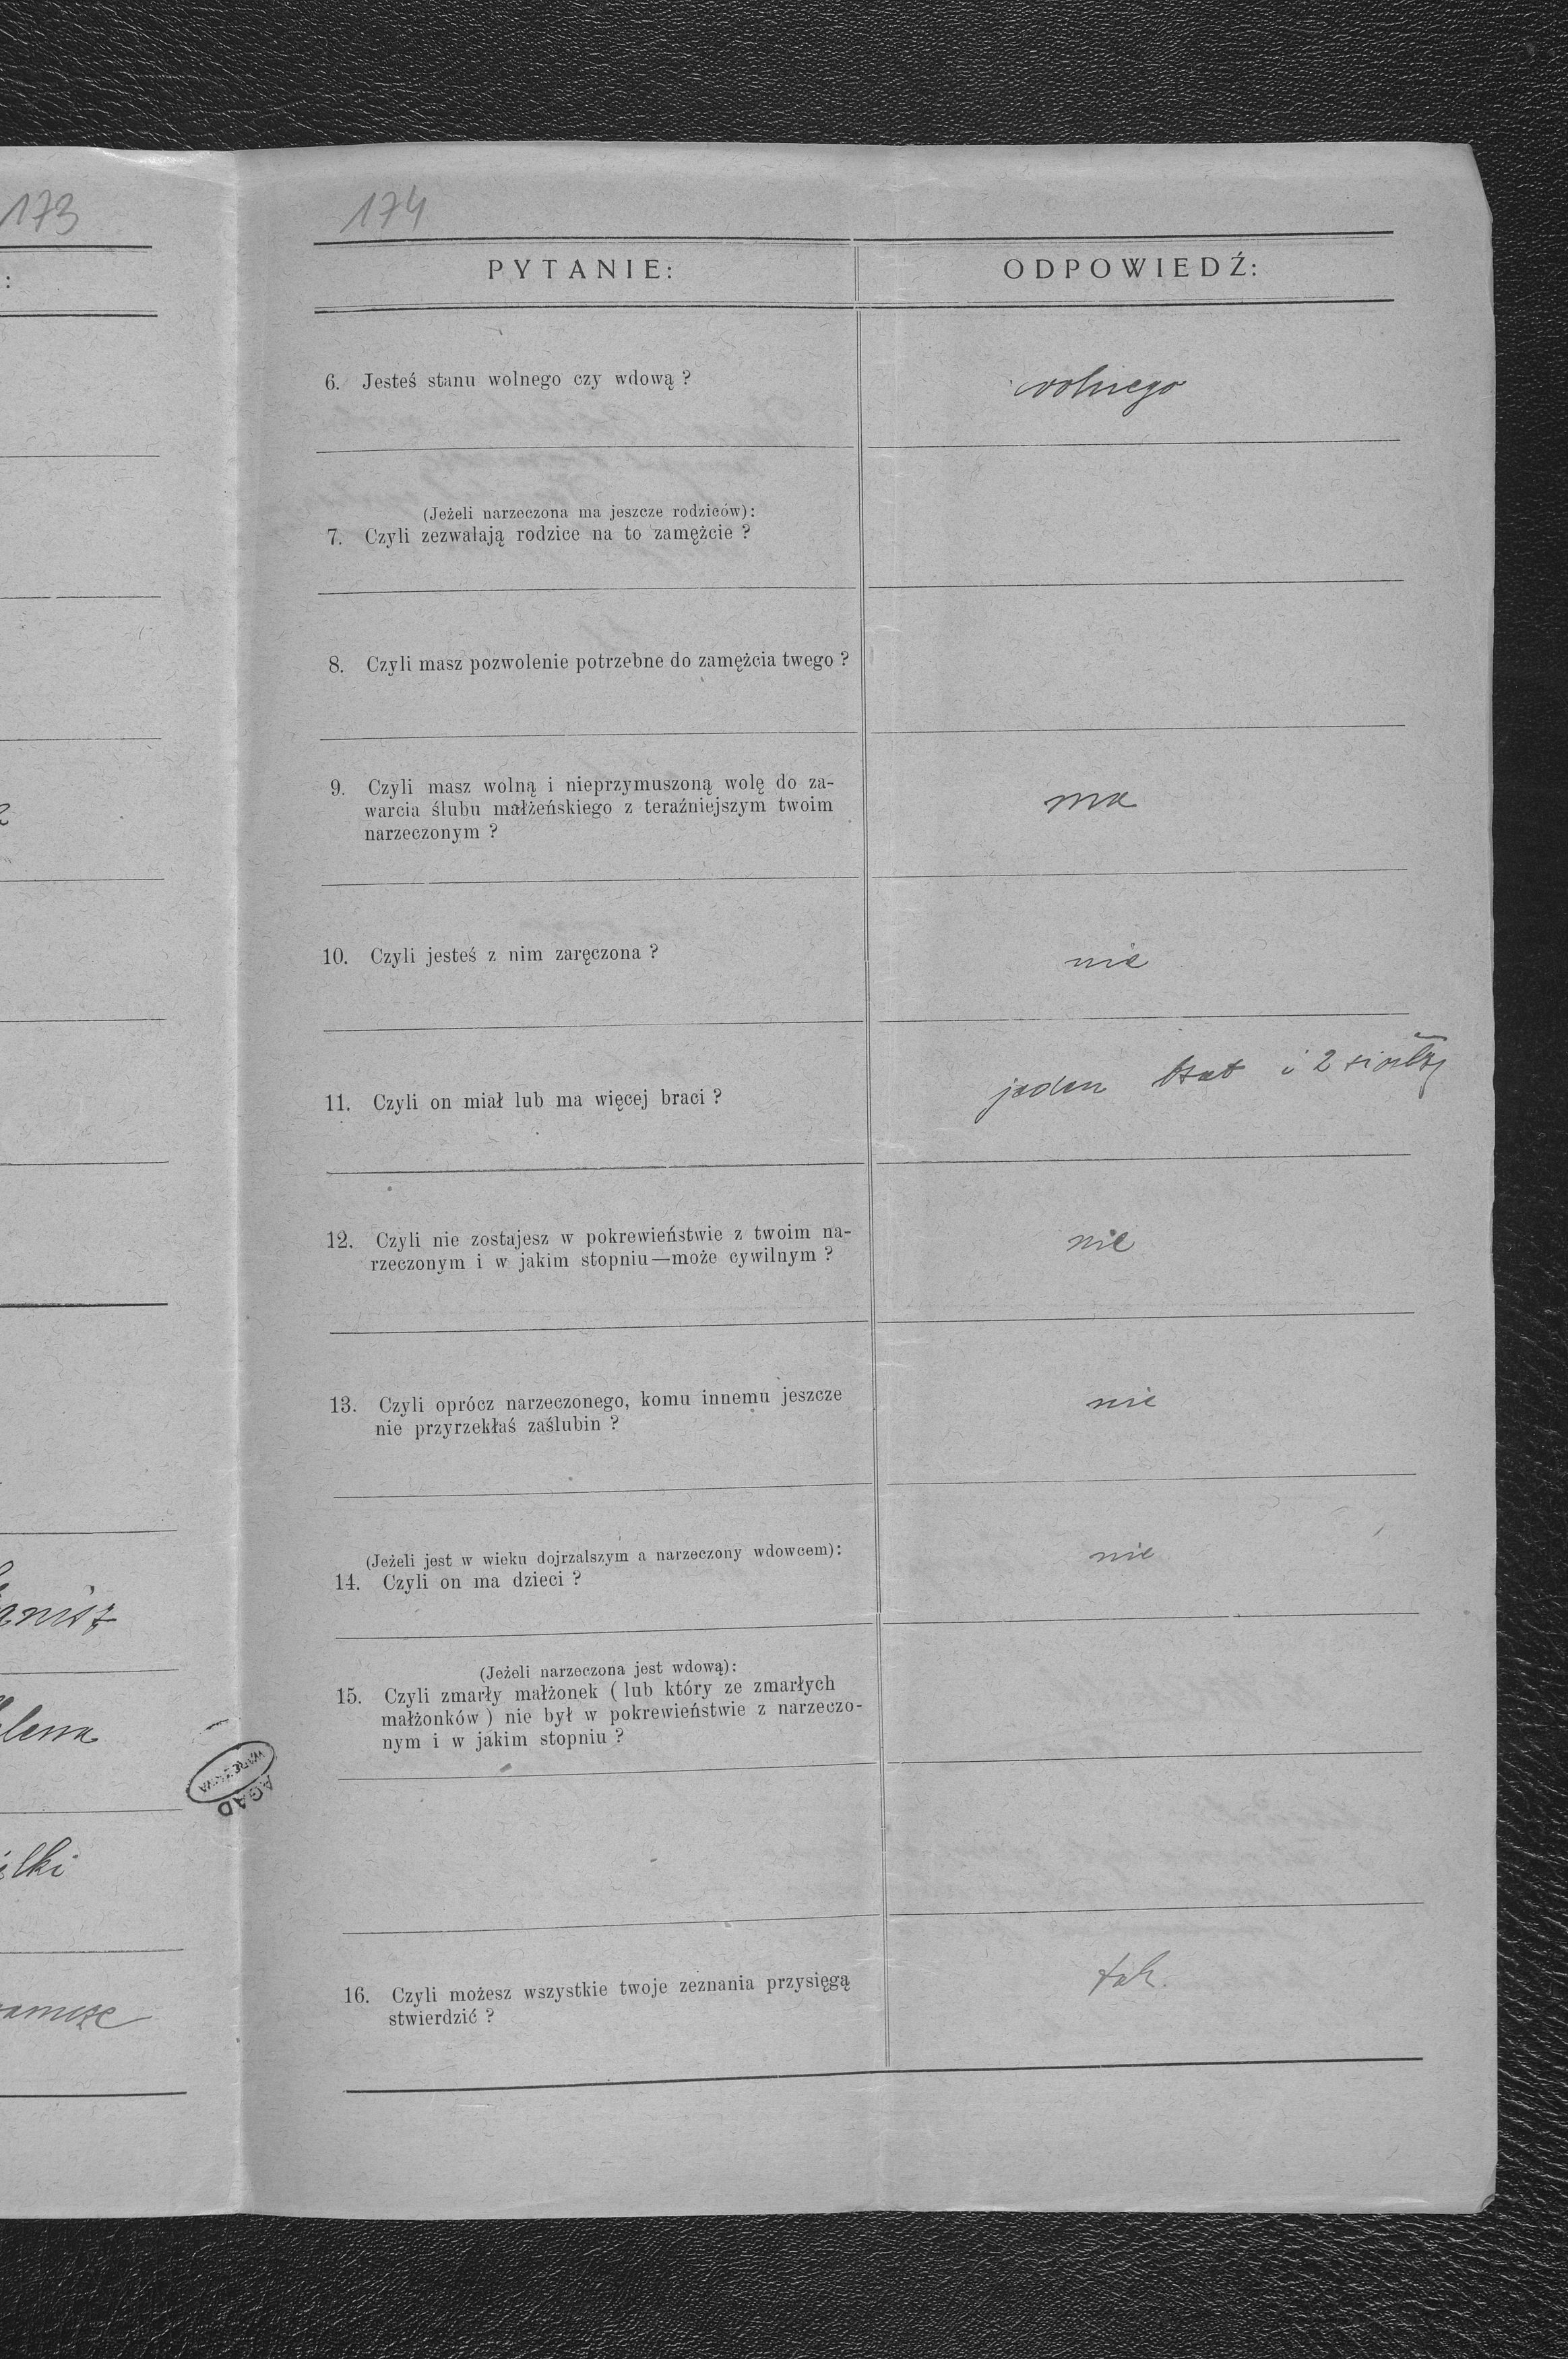 173
:
anisz
ilki
174
PYTANIE: ODPOWIEDŹ:
6. Jesteś stanu wolnego czy wdową ? wolnego
(Jeżeli narzeczona ma jeszcze rodziców):
7. Czyli zezwalają rodzice na to zamężcie ?
8. Czyli masz pozwolenie potrzebne do zamężcia twego ?
9. Czyli masz wolną i nieprzymuszoną wolę do za-
warcia ślubu małżeńskiego z teraźniejszym twoim ma
narzeczonym ?
10. Czyli jesteś z nim zaręczona ? nie
11. Czyli on miał lub ma więcej braci ? jeden brat i 2 siostry
12. Czyli nie zostajesz w pokrewieństwie z twoim na- nie
rzeczonym i w jakim stopniu—może cywilnym ?
13. Czyli oprócz narzeczonego, komu innemu jeszcze nie
nie przyrzekłaś zaślubin ?
(Jeżeli jest w wieku dojrzalszym a narzeczony wdowcem): nie
14. Czyli on ma dzieci ?
(Jeżeli narzeczona jest wdową):
15. Czyli zmarły małżonek ( lub który ze zmarłych
małżonków ) nie był w pokrewieństwie z narzeczo-
nym i w jakim stopniu ?
16. Czyli możesz wszystkie twoje zeznania przysięgą tak.
stwierdzić ?
WARSZAWA
AGAD